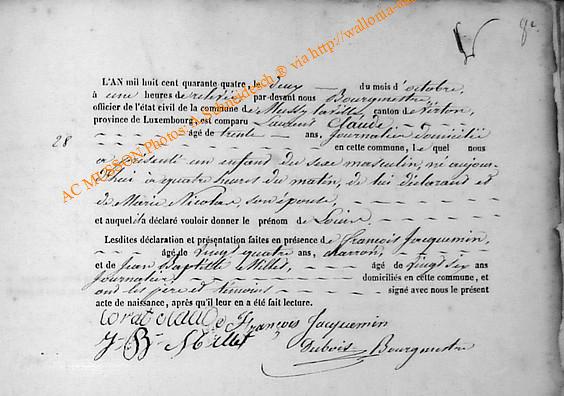 AC MUSSON Photos A. Schneidesch ® via http://wallonia-
L'AN mil huit cent quarante quatre, le deux du mois d'octobre,
à une heures de relevée par-devant nous Bourgmestre
officier de l'état civil de la commune de Mussy la ville, canton de Virton,
province de Luxembourg, est comparu Laurent Claude
âgé de trente ans, journalier domicilié
en cette commune, le quel nous
28
a présenté un enfant du sexe masculin, né aujour-
d'hui à quatre heures du matin, de lui déclarant et
de Marie Nicolas son épouse,
et auquel il a déclaré vouloir donner le prénom de Louis
Lesdites déclaration et présentation faites en présence de François Jacquemin,
âgé de vingt quatre ans, charron,
et de Jean Baptiste Millet, âgé de vingt six ans
journalier domiciliés en cette commune, et
ont les père et témoins signé avec nous le présent
acte de naissance, après qu'il leur en a été fait lecture.
Claude François Jacquemin
J. B. Millet
Dubois Bourgmestre